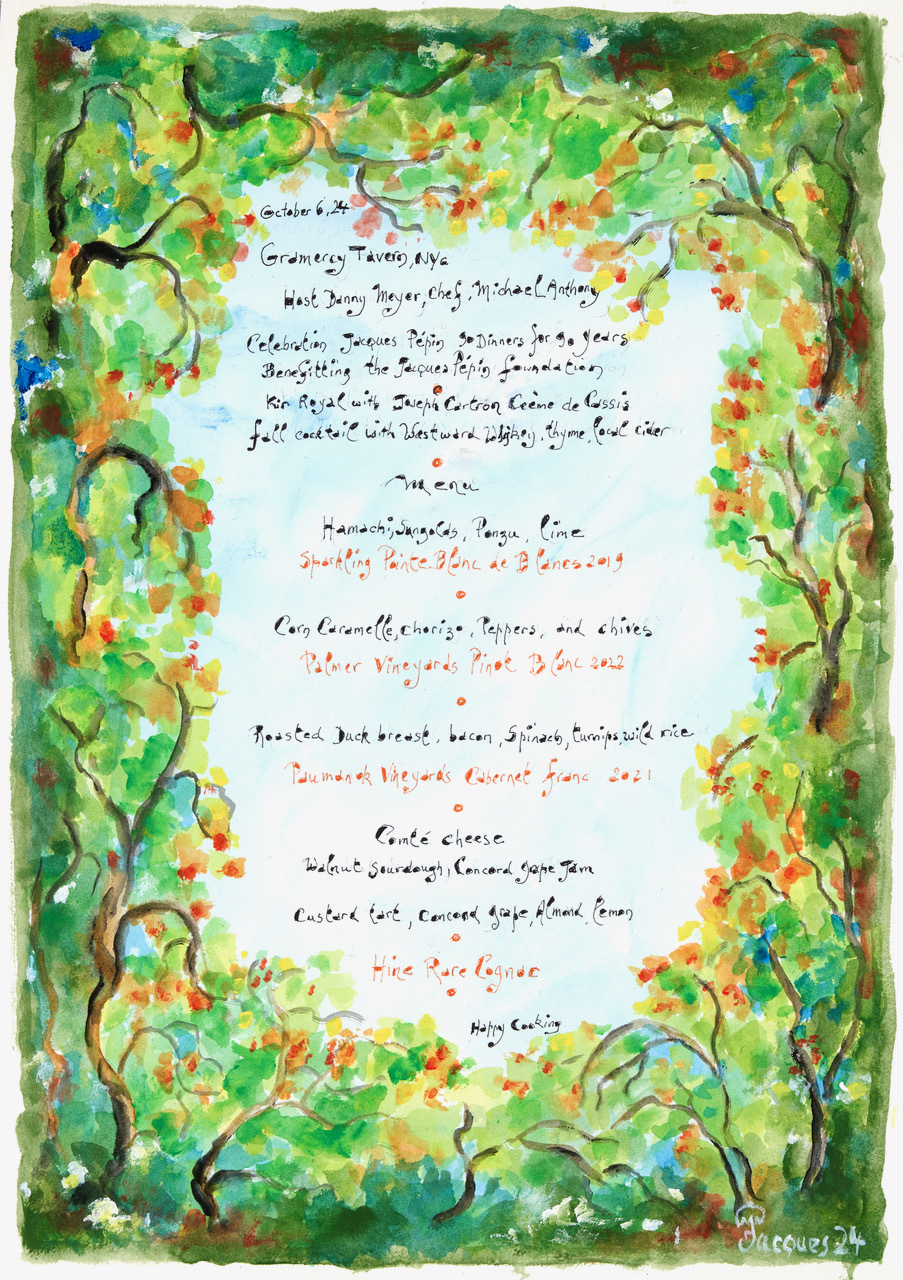 October 6, 24
Gramercy Tavern, NYC
Host Danny Meyer, Chef, Michael Anthony
Celebration Jacques Pépin 90 Dinners for 90 years
Benefitting the Jacques Pépin foundation
Kir Royal with Joseph Cartron Crème de Cassis
fall cocktail with Westward Whiskey, thyme, local cider
Menu
Hamachi, Sungolds, Ponzu, lime
Sparkling Pointe Blanc de Blancs 2019
Corn Caramelle, chorizo, Peppers, and chives
Palmer Vineyards Pinot Blanc 2022
Roasted Duck breast, bacon, Spinach, turnips, wild rice
Paumanok Vineyards Cabernet franc 2021
Comté cheese
Walnut Sourdough, Concord grape Jam
Custard tart, Concord grape, Almond, lemon
Hine Rare Cognac
Happy Cooking
Jacques 24